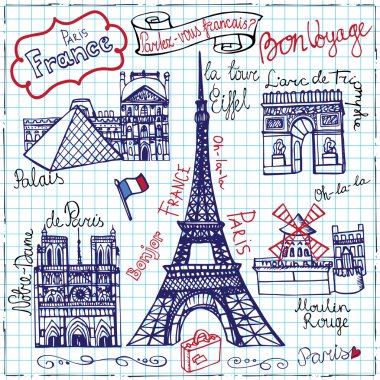 PARIS
France
Parlez-vous francais?
Bon Voyage
la tour
Eiffel
L'arc de Triomphe
Palais
Oh-la-la
FRANCE
PARIS
Bonjor
Oh-la-la
Notre-Dame
de Paris
Moulin
Rouge
Paris